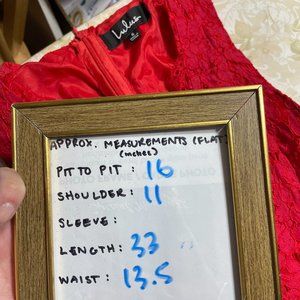 Lulus
APPROX. MEASUREMENTS (FLAT)
(inches)
PIT TO PIT : 16
SHOULDER : 11
SLEEVE :
LENGTH : 33
WAIST : 13.5